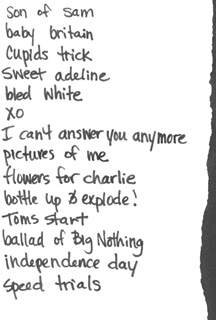 son of sam
baby britain
Cupids trick
Sweet adeline
bled white
XO
I can't answer you anymore
pictures of me
flowers for charlie
bottle up & explode!
Toms start
ballad of Big Nothing
independence day
speed trials